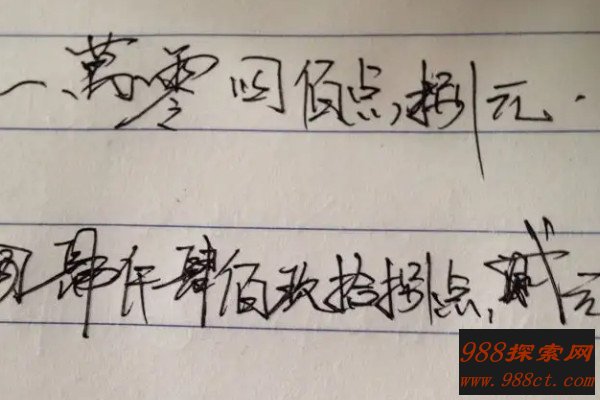 一萬零四佰点捌元.
肆仟肆佰玖拾捌点 元
988探索网
www.988ct.com